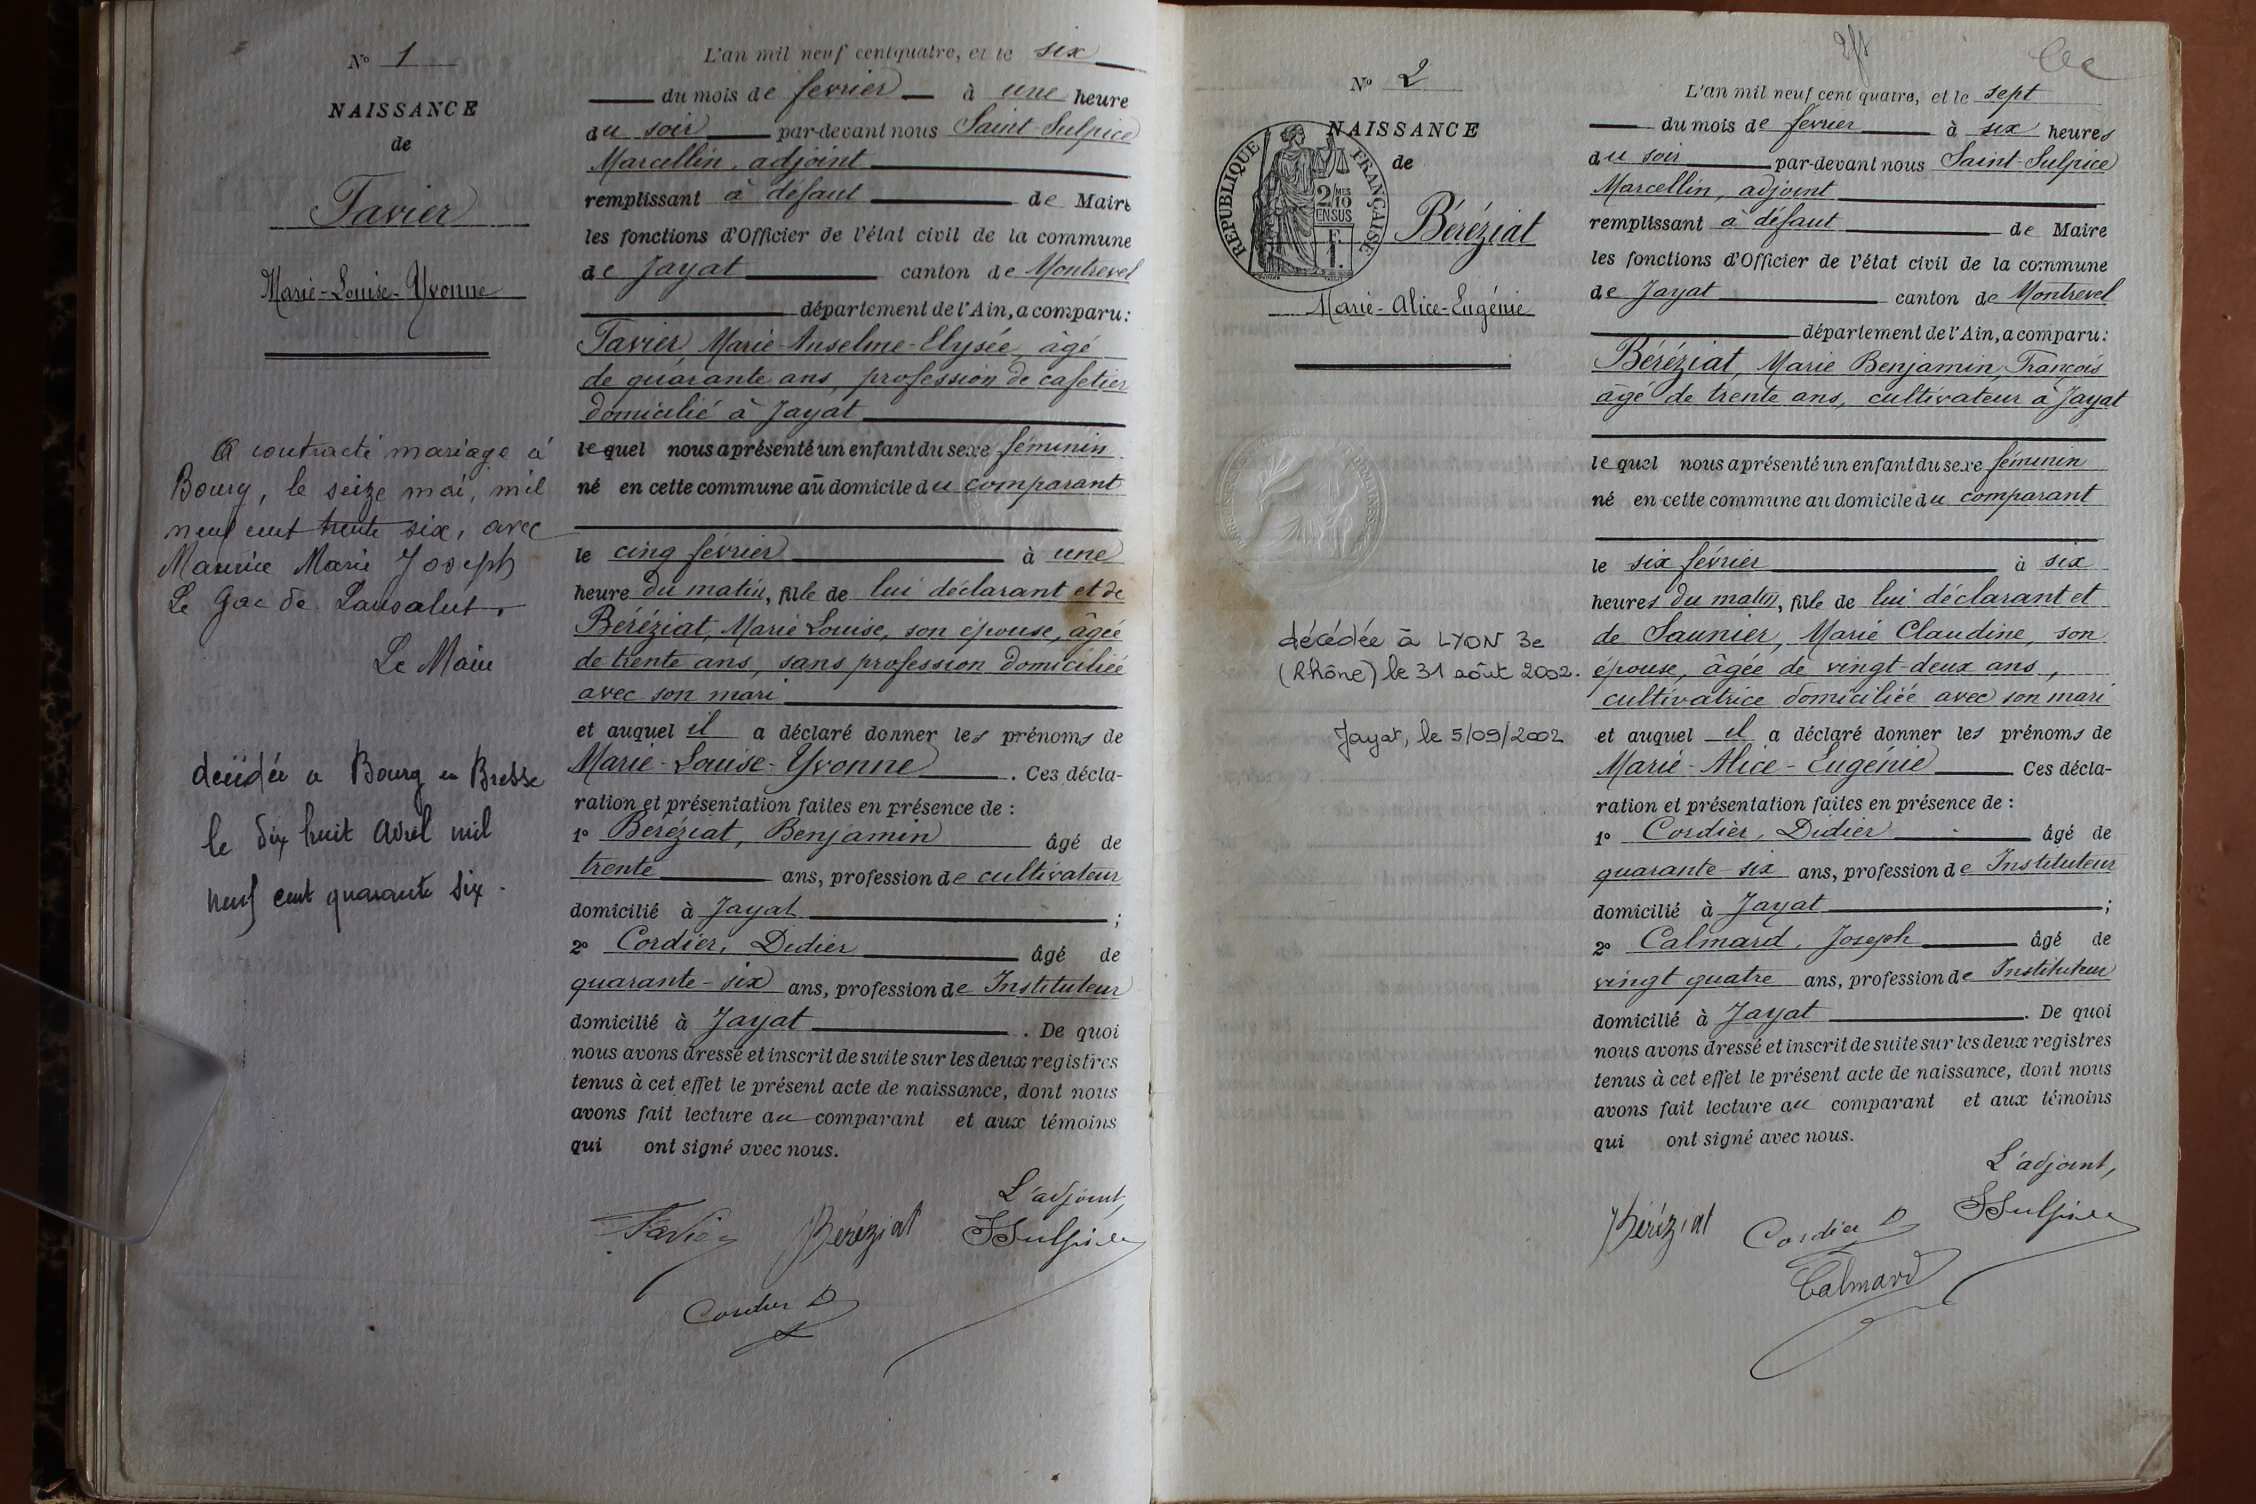 N° 1
NAISSANCE
de
Favier
Marie-Louise-Yvonne
A contracté mariage à
Bourg, le seize mai, mil
neuf cent trente six, avec
Maurice Marie Joseph
Le Gac de Lansalut.
Le Maire
décédée a Bourg en Bresse
le dix huit Avril mil
neuf cent quarante six.
L'an mil neuf cent quatre, et le six
du mois de février à une heure
du soir par-devant nous Saint-Sulpice
Marcellin, adjoint
remplissant à défaut de Maire
les fonctions d'Officier de l'état civil de la commune
de Jayat canton de Montrevel
département de l'Ain, a comparu :
Favier, Marie-Anselme-Elysée, âgé
de quarante ans, profession de cafetier
domicilié à Jayat
lequel nous a présenté un enfant du sexe féminin
né en cette commune au domicile du comparant
le cinq février à une
heure du matin, fille de lui déclarant et de
Béréziat, Marie Louise, son épouse, âgée
de trente ans, sans profession domiciliée
avec son mari
et auquel il a déclaré donner les prénoms de
Marie-Louise-Yvonne. Ces décla-
ration et présentation faites en présence de :
1° Béréziat, Benjamin âgé de
trente ans, profession de cultivateur
domicilié à Jayat ;
2° Cordier, Didier âgé de
quarante-six ans, profession de Instituteur
domicilié à Jayat. De quoi
nous avons dressé et inscrit de suite sur les deux registres
tenus à cet effet le présent acte de naissance, dont nous
avons fait lecture au comparant et aux témoins
qui ont signé avec nous.
L'adjoint,
Favier Béréziat SSulpice
Cordier D
N° 2
NAISSANCE
de
RÉPUBLIQUE FRANÇAISE
2/10 MES
EN SUS
1 F.
Béréziat
Marie-Alice-Eugénie
décédée à LYON 3e
(Rhône) le 31 août 2002.
Jayat, le 5/09/2002
L'an mil neuf cent quatre, et le sept
du mois de février à six heures
du soir par-devant nous Saint-Sulpice
Marcellin, adjoint
remplissant à défaut de Maire
les fonctions d'Officier de l'état civil de la commune
de Jayat canton de Montrevel
département de l'Ain, a comparu :
Béréziat, Marie Benjamin, François
âgé de trente ans, cultivateur à Jayat
lequel nous a présenté un enfant du sexe féminin
né en cette commune au domicile du comparant
le six février à six
heures du matin, fille de lui déclarant et
de Saunier, Marie Claudine, son
épouse, âgée de vingt-deux ans,
cultivatrice domiciliée avec son mari
et auquel il a déclaré donner les prénoms de
Marie-Alice-Eugénie Ces décla-
ration et présentation faites en présence de :
1° Cordier, Didier âgé de
quarante-six ans, profession de Instituteur
domicilié à Jayat ;
2° Calmard, Joseph âgé de
vingt quatre ans, profession de Instituteur
domicilié à Jayat. De quoi
nous avons dressé et inscrit de suite sur les deux registres
tenus à cet effet le présent acte de naissance, dont nous
avons fait lecture au comparant et aux témoins
qui ont signé avec nous.
L'adjoint,
Béréziat Cordier D SSulpice
Calmard